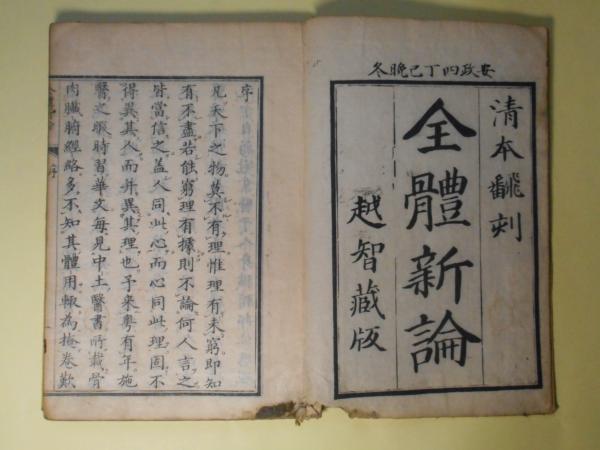 安政四丁巳晩冬
清本翻刻
全體新論
越智藏版
序
凡天下之物莫不有理惟理有未窮即知
有不盡若能窮理有據則不論何人言之
皆當信之蓋人同此心而心同此理固不
得異其人而并異其理也予来粤有年施
醫之暇時習華文每見中土醫書所載骨
肉臟腑經絡多不知其體用輒為掩卷歎